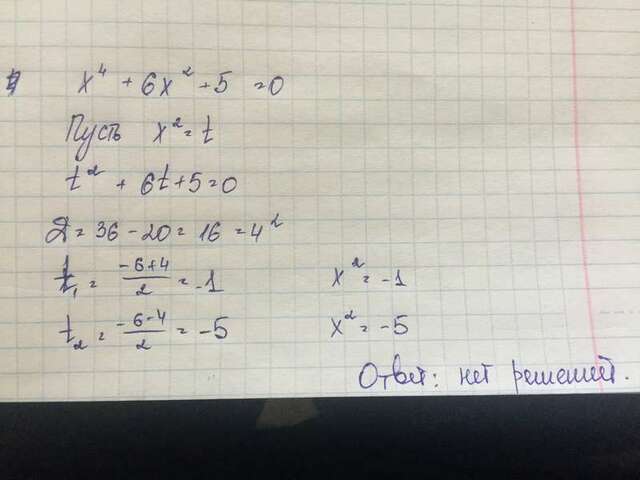 x⁴ + 6x² + 5 = 0
Пусть x² = t
t² + 6t + 5 = 0
D = 36 - 20 = 16 = 4²
t₁ = (-6+4)/2 = -1 x² = -1
t₂ = (-6-4)/2 = -5 x² = -5
Ответ: нет решений.